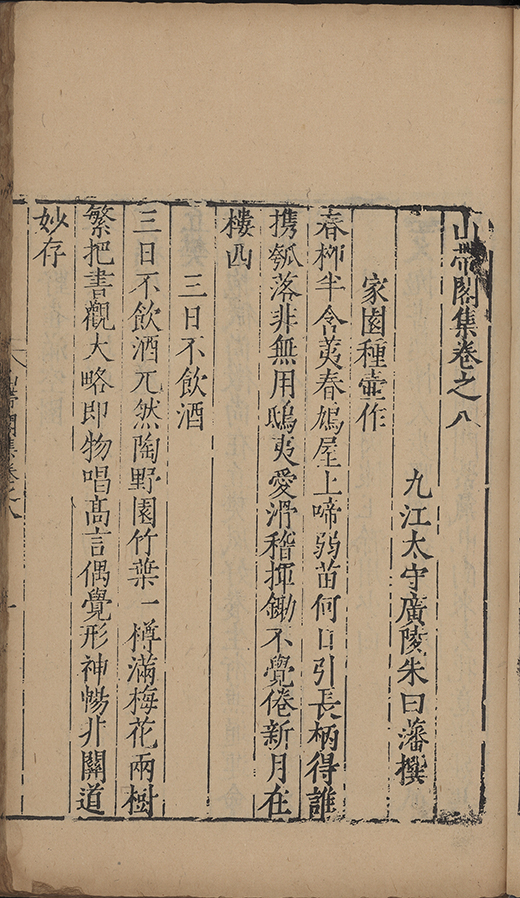 山帶閣集卷之八
九江太守廣陵朱曰藩撰
家園種壺作
春柳半含荑春鳩屋上啼弱苗何日引長柄得誰
携瓠落非無用鴟夷愛滑稽揮鋤不覺倦新月在
樓西
三日不飲酒
三日不飲酒兀然陶野園竹葉一樽滿梅花兩樹
繁把書觀大略即物唱高言偶覺形神暢非關道
妙存
山帶閣集卷之八
一